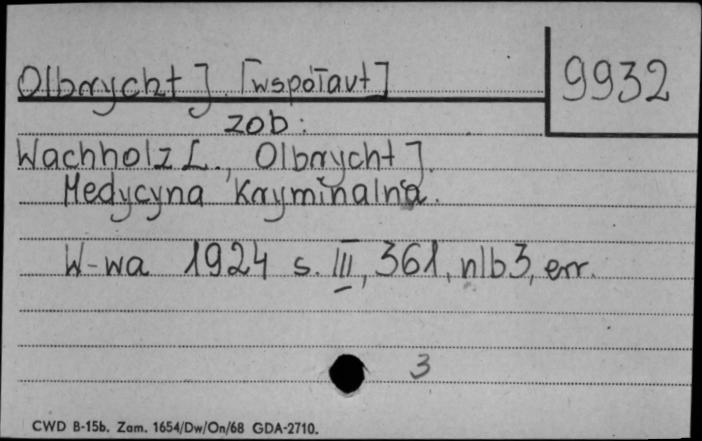 Olbrycht J. [współaut]
9932
zob:
Wachholz L., Olbrycht J.
Medycyna Kryminalna.
W-wa 1924 s. III, 361, nlb3, err.
3
CWD B-15b. Zam. 1654/Dw/On/68 GDA-2710.